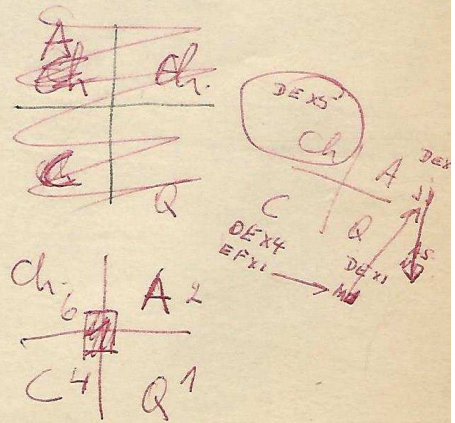 A
Ch Ch.
C
Q
DEX5
Ch A DEX
C Q
DEX4 DEX1
EFX1
Ch. 6 A 2
C 4 Q 1